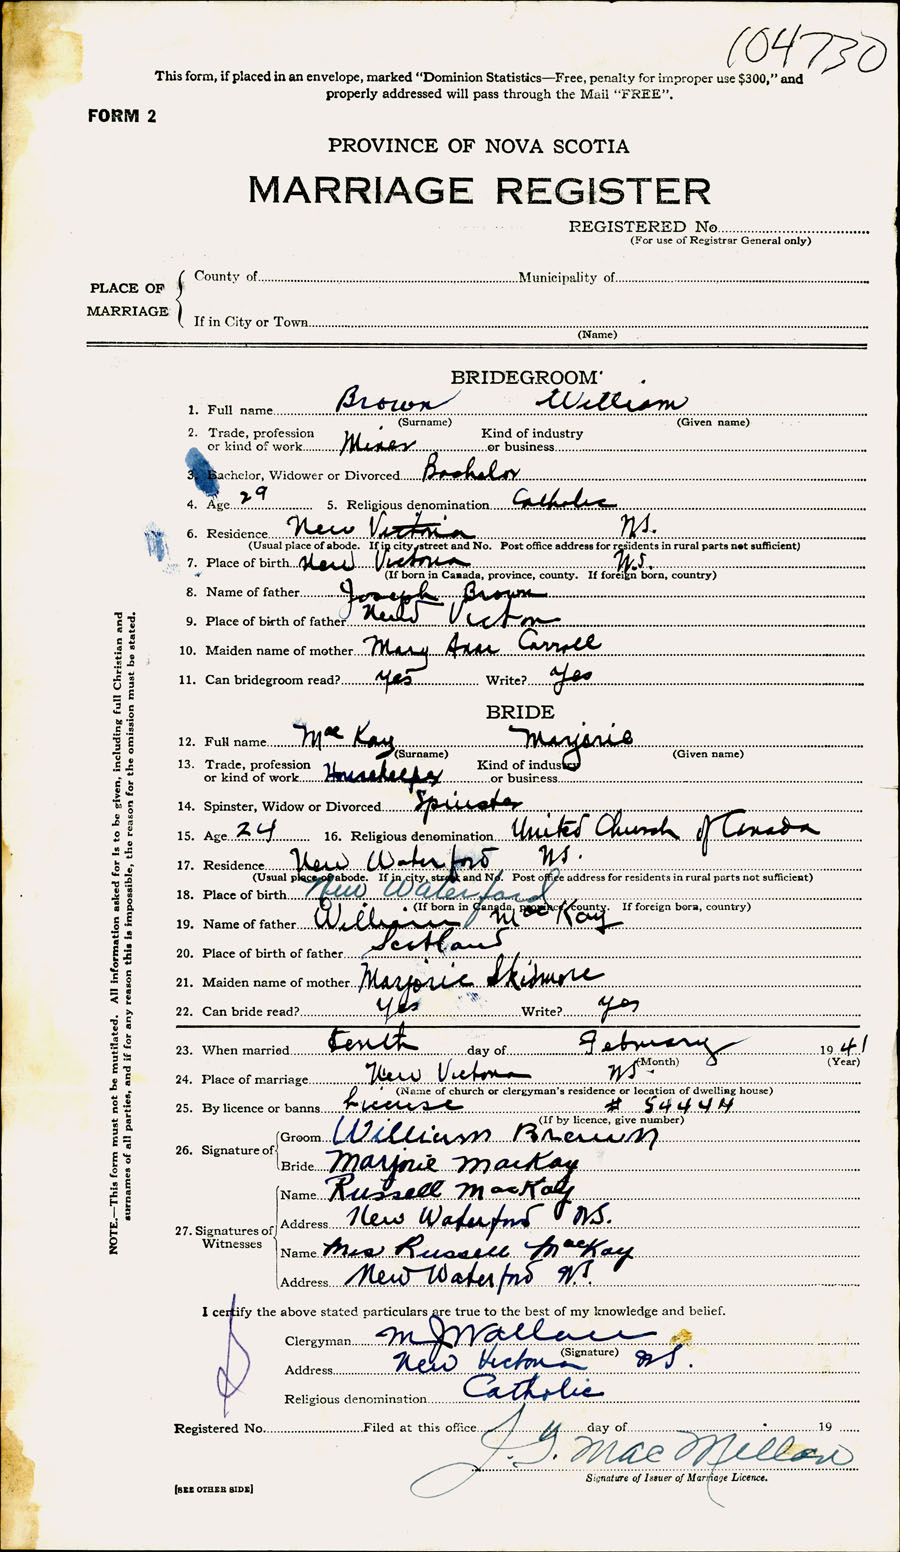 104730
This form, if placed in an envelope, marked "Dominion Statistics—Free, penalty for improper use $300," and
properly addressed will pass through the Mail "FREE".
FORM 2
PROVINCE OF NOVA SCOTIA
MARRIAGE REGISTER
REGISTERED No.
(For use of Registrar General only)
PLACE OF MARRIAGE
County of Municipality of
If in City or Town
(Name)
BRIDEGROOM
1. Full name Brown William
(Surname) (Given name)
2. Trade, profession or kind of work Miner Kind of industry or business
3. Bachelor, Widower or Divorced Bachelor
4. Age 29 5. Religious denomination Catholic
6. Residence New Victoria N.S.
(Usual place of abode. If in city, street and No. Post office address for residents in rural parts not sufficient)
7. Place of birth New Victoria N.S.
(If born in Canada, province, county. If foreign born, country)
8. Name of father Joseph Brown
9. Place of birth of father New Victon
10. Maiden name of mother Mary Ann Carroll
11. Can bridegroom read? yes Write? yes
BRIDE
12. Full name MacKay Marjorie
(Surname) (Given name)
13. Trade, profession or kind of work Housekeeper Kind of industry or business
14. Spinster, Widow or Divorced Spinster
15. Age 24 16. Religious denomination United Church of Canada
17. Residence New Waterford N.S.
(Usual place of abode. If in city, street and No. Post office address for residents in rural parts not sufficient)
18. Place of birth New Waterford
(If born in Canada, province, county. If foreign born, country)
19. Name of father William MacKay
20. Place of birth of father Scotland
21. Maiden name of mother Marjorie Skidmore
22. Can bride read? Yes Write? yes
23. When married tenth day of February 1941
(Month) (Year)
24. Place of marriage New Victoria N.S.
(Name of church or clergyman's residence or location of dwelling house)
25. By licence or banns License # 54444
(If by licence, give number)
26. Signature of Groom William Brown
Bride Marjorie MacKay
27. Signatures of Witnesses Name Russell MacKay
Address New Waterford N.S.
Name Mrs Russell MacKay
Address New Waterford N.S.
I certify the above stated particulars are true to the best of my knowledge and belief.
Clergyman M J Wallace
(Signature)
Address New Victoria N.S.
Religious denomination Catholic
Registered No. Filed at this office day of 19
J. G. MacMillan
Signature of Issuer of Marriage Licence.
[SEE OTHER SIDE]
NOTE.—This form must not be mutilated. All information asked for is to be given, including full Christian and
surnames of all parties, and if for any reason this is impossible, the reason for the omission must be stated.